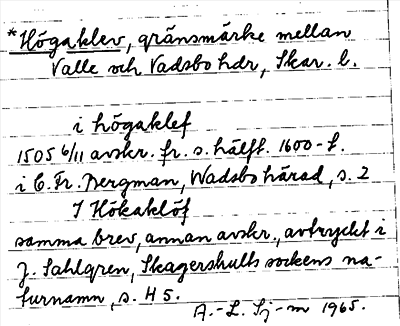 *Högaklev, gränsmärke mellan
Valle och Vadsbo hdr, Skar. l.
i högaklef
1505 6/11 avskr. fr. s. hälft. 1600-t.
i C. Fr. Bergman, Wadsbo härad, s. 2
I Hökaklöf
samma brev, annan avskr., avtryckt i
J. Sahlgren, Skagershults sockens na-
turnamn, s. 45.
A.-L. Sj-m 1965.